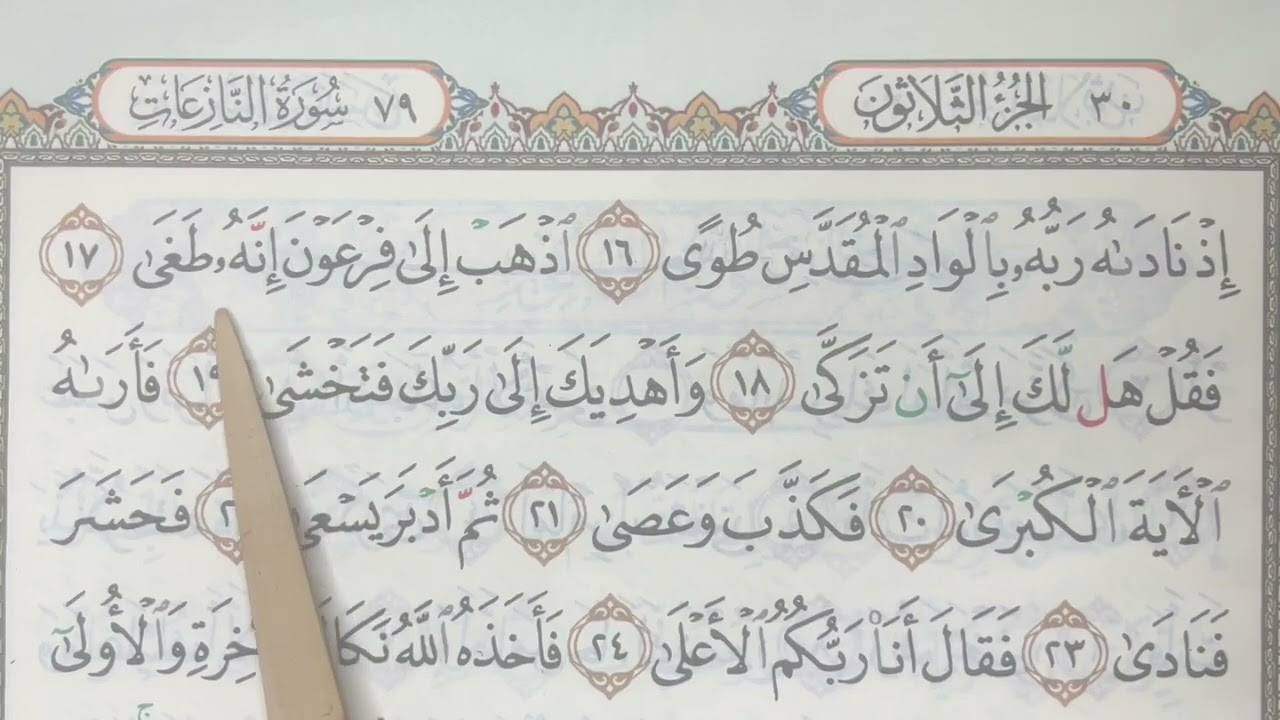 ٣٠ الجُزْءُ الثَّلَاثُونَ
٧٩ سُورَةُ النَّازِعَاتِ
إِذْ نَادَىٰهُ رَبُّهُۥ بِٱلْوَادِ ٱلْمُقَدَّسِ طُوًى ١٦ ٱذْهَبْ إِلَىٰ فِرْعَوْنَ إِنَّهُۥ طَغَىٰ ١٧
فَقُلْ هَل لَّكَ إِلَىٰٓ أَن تَزَكَّىٰ ١٨ وَأَهْدِيَكَ إِلَىٰ رَبِّكَ فَتَخْشَىٰ ١٩ فَأَرَىٰهُ
ٱلْأَيَةَ ٱلْكُبْرَىٰ ٢٠ فَكَذَّبَ وَعَصَىٰ ٢١ ثُمَّ أَدْبَرَ يَسْعَىٰ فَحَشَرَ
فَنَادَىٰ ٢٣ فَقَالَ أَنَا۠ رَبُّكُمُ ٱلْأَعْلَىٰ ٢٤ فَأَخَذَهُ ٱللَّهُ وَٱلْأُولَىٰٓ